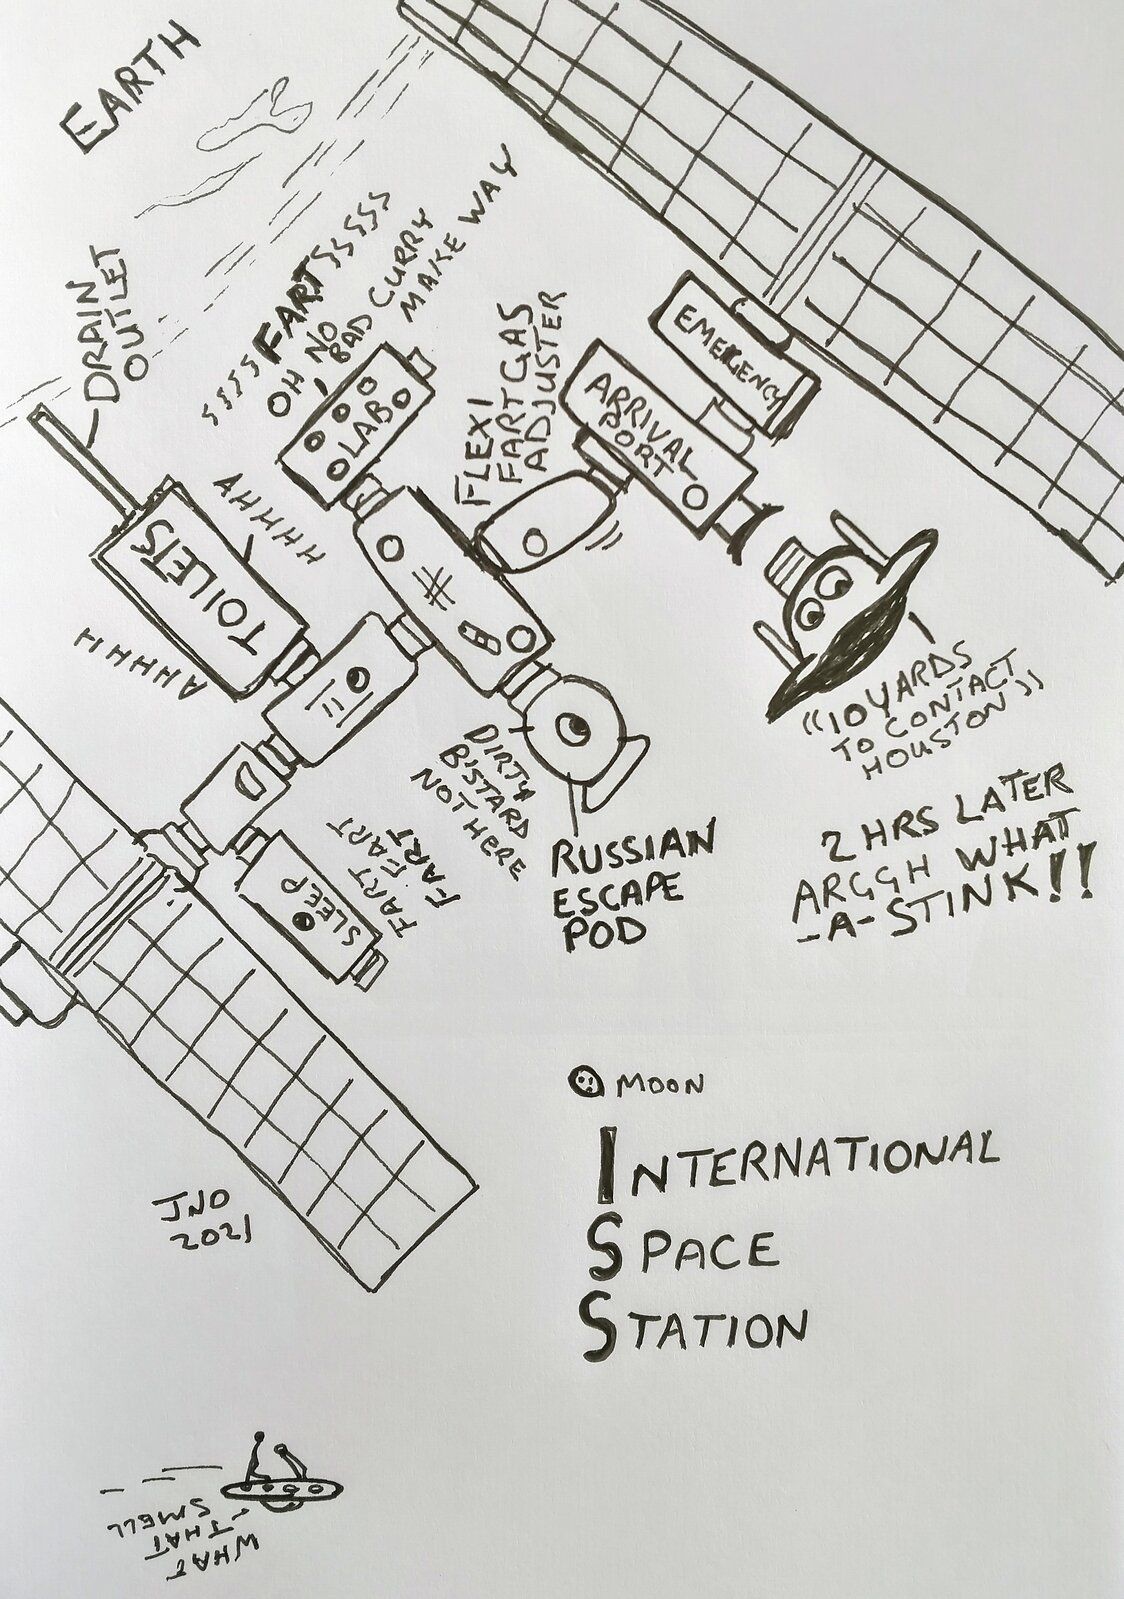 EARTH
DRAIN
OUTLET
SSSSFARTSSSSSS
OH NO
BAD CURRY
MAKE WAY
LAB
FLEXI
FARTGAS
ADJUSTER
EMERGENCY
ARRIVAL
PORT
TOILETS
AHHHH
AHHHH
"10 YARDS
TO CONTACT
HOUSTON"
2 HRS LATER
ARGGH WHAT
-A-STINK!!
DIRTY
B'STARD
NOT HERE
RUSSIAN
ESCAPE
POD
SLEEP
FART
FART
FART
FART
MOON
INTERNATIONAL
SPACE
STATION
JNO
2021
WHAT
THAT
SMELL